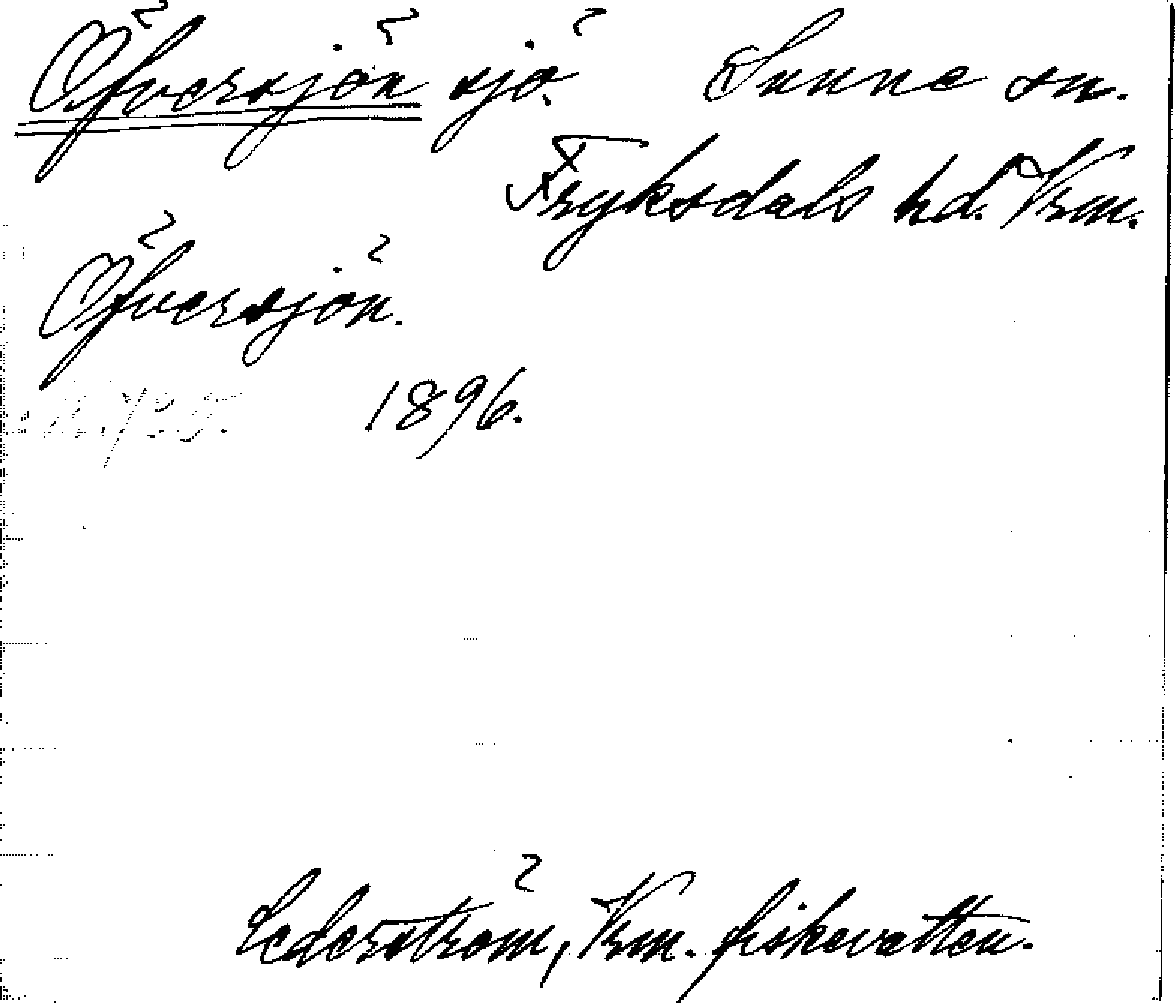 Öfversjön sjö. Sunne sn.
Fryksdals hd. Vrm.
Öfversjön.
1896.
Cederström, Vrm. fiskevatten.